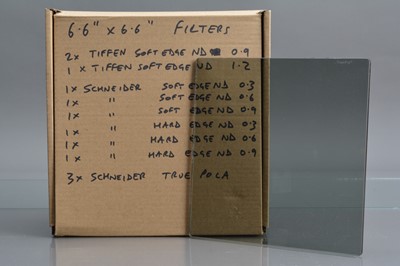 6.6" x 6.6" FILTERS
2x TIFFEN SOFT EDGE ND 0.9
1 x TIFFEN SOFT EDGE ND 1.2
1x SCHNEIDER SOFT EDGE ND 0.3
1x " SOFT EDGE ND 0.6
1x " SOFT EDGE ND 0.9
1x " HARD EDGE ND 0.3
1x " HARD EDGE ND 0.6
1x " HARD EDGE ND 0.9
3x SCHNEIDER TRUE POLA